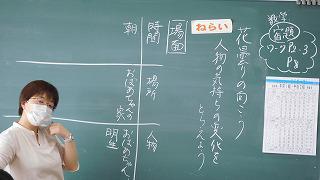 数学
宿題
ワーク P2、3
P8
ねらい
花曇りの向こう
人物の気持ちの変化を
とらえよう
場面
時間
場所
人物
朝
おばあちゃんの
家
おばあちゃん
明生